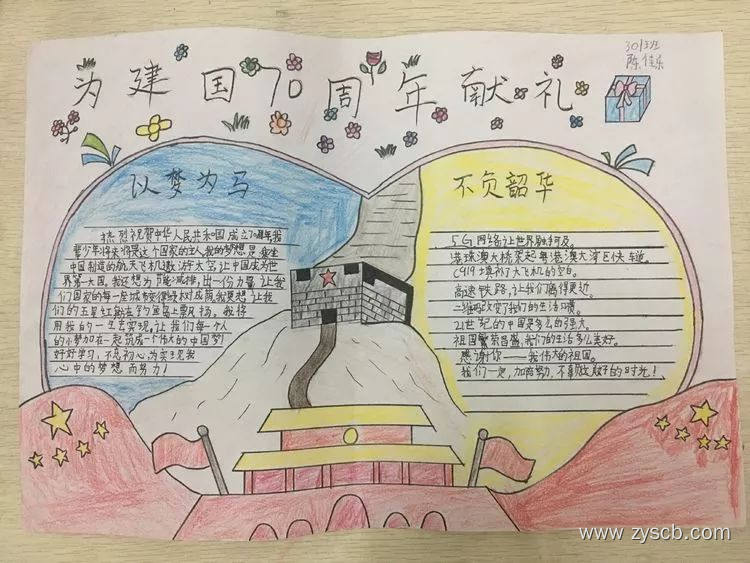 为建国70周年献礼
301班
陈佳乐
以梦为马
热烈祝贺中华人民共和国成立70周年我
是少年将来将是这个国家的主人我的梦想是乘坐
中国制造的航天飞机遨游太空让中国成为世
界第一大国,我还想为节能减排,出一份力量让我
们国家的每一座城市变得绿树成荫我更想让我
们的五星红旗在岛上飘扬,我将
用我的一生去实现,让我们每一个人
的小梦加在一起筑成一个伟大的中国梦!
好好学习,不忘初心为实现我
心中的梦想而努力!
不负韶华
5G网络让世界触手可及。
港珠澳大桥架起粤港澳大湾区快车道。
C919填补了大飞机的空白。
高速铁路,让我们离得更近
二维码改变了我们的生活习惯。
21世纪的中国是多么的强大。
祖国繁荣昌盛,我们的生活多么美好。
感谢你——我伟大的祖国。
我们一起,加油努力,不辜负这美好的时光!
www.zyscb.com